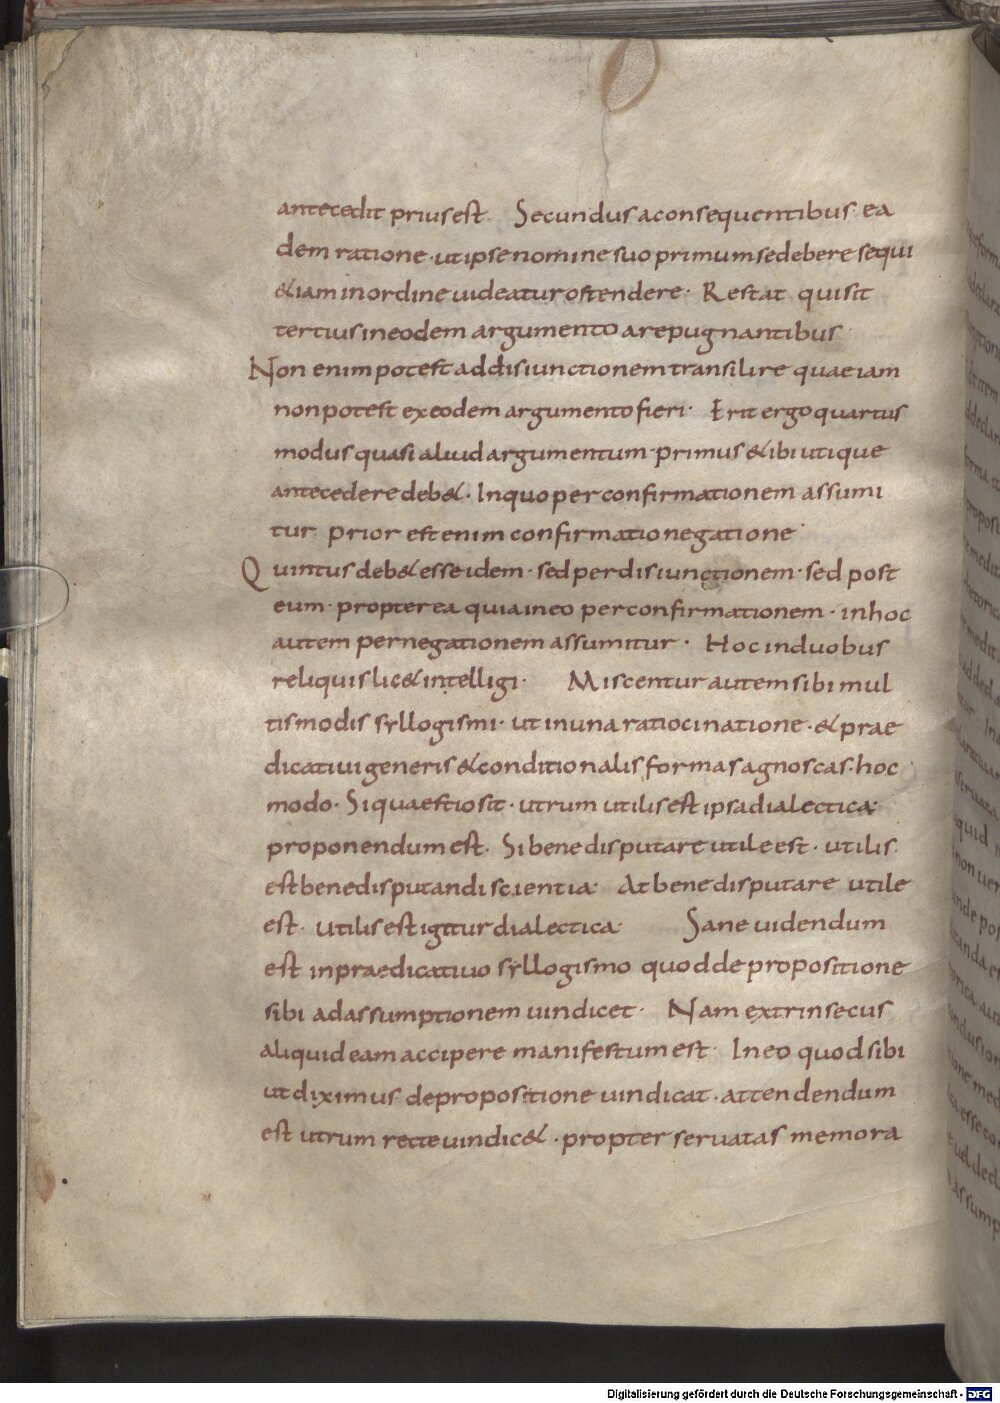 antecedit prius est. Secundus a consequentibus ea
dem ratione · ut ipse nomine suo primum se debere sequi
& iam in ordine uideatur ostendere · Restat qui sit
tertius in eodem argumento a repugnantibus
Non enim potest ad disiunctionem transilire quae iam
non potest ex eodem argumento fieri · Erit ergo quartus
modus quasi aliud argumentum · primus & ibi utique
antecedere deb& · In quo per confirmationem assumi
tur prior est enim confirmatio negatione ·
Quintus deb& esse idem · sed per disiunctionem · sed post
eum · propterea quia in eo per confirmationem · in hoc
autem per negationem assumitur · Hoc in duobus
reliquis lic& intelligi · Miscentur autem sibi mul
tis modis syllogismi · ut in una ratiocinatione · & prae
dicatiui generis & conditionalis formas agnoscas · hoc
modo · Si quaestio sit · utrum utilis est ipsa dialectica ·
proponendum est · Si bene disputare utile est · utilis
est bene disputandi scientia · At bene disputare utile
est · Utilis est igitur dialectica · Sane uidendum
est in praedicatiuo syllogismo quod de propositione
sibi ad assumptionem uindicet · Nam extrinsecus
aliquid eam accipere manifestum est · In eo quod sibi
ut diximus de propositione uindicat · attendendum
est utrum recte uindic& · propter seruatas memora
Digitalisierung gefördert durch die Deutsche Forschungsgemeinschaft - DFG